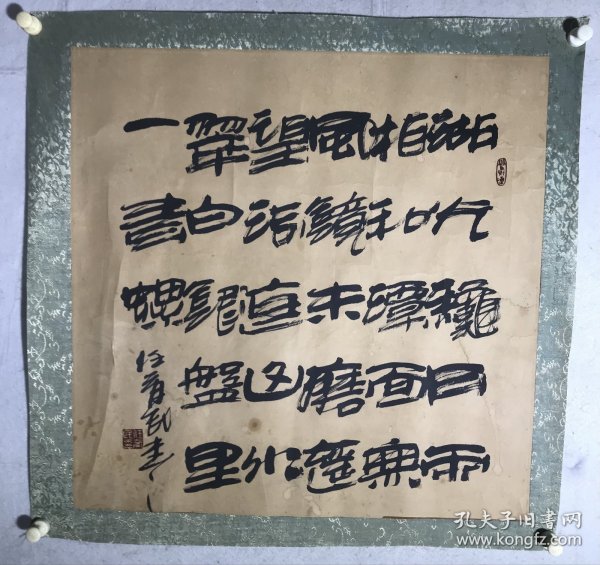 湖光龝月兩
相和潭面無
風鏡未磨遥
望洞庭山水
翠白銀盤里
一青螺
孔夫子旧书网
www.kongfz.com